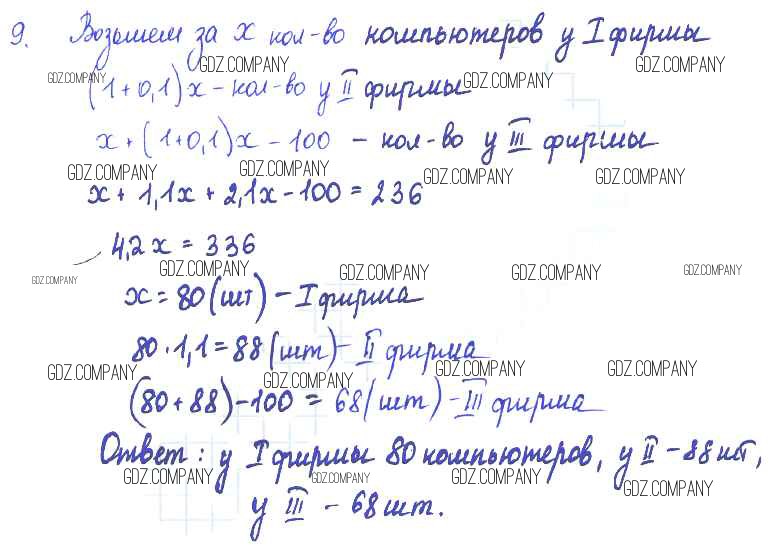 9. Возьмем за x кол-во компьютеров у I фирмы
GDZ.COMPANY GDZ.COMPANY GDZ.COMPANY GDZ.COMPANY
(1+0,1)x - кол-во у II фирмы
x + (1+0,1)x - 100 - кол-во у III фирмы
GDZ.COMPANY GDZ.COMPANY GDZ.COMPANY GDZ.COMPANY
x + 1,1x + 2,1x - 100 = 236
4,2x = 336
GDZ.COMPANY GDZ.COMPANY GDZ.COMPANY GDZ.COMPANY GDZ.COMPANY
x = 80 (шт) - I фирма
80 · 1,1 = 88 (шт) - II фирма
GDZ.COMPANY GDZ.COMPANY GDZ.COMPANY GDZ.COMPANY
(80 + 88) - 100 = 68 (шт) - III фирма
Ответ: у I фирмы 80 компьютеров, у II - 88 шт,
GDZ.COMPANY GDZ.COMPANY GDZ.COMPANY GDZ.COMPANY
у III - 68 шт.